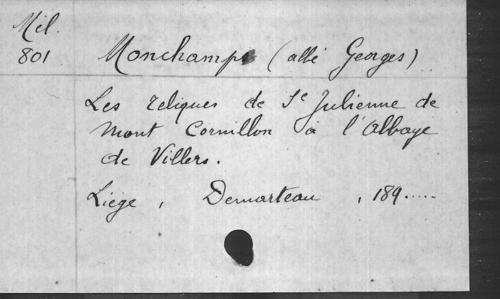 Mél.
801
Monchamp (abbé Georges)
Les reliques de Ste Julienne de
Mont Cornillon à l'Abbaye
de Villers.
Liège, Demarteau, 189.....